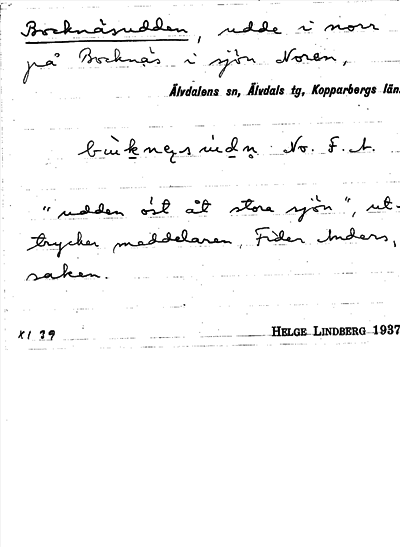 Bocknäsudden, udde i norr
på Bocknäs i sjön Noren,
Älvdalens sn, Älvdals tg, Kopparbergs län.
No. F. A.
"udden öst åt stora sjön", ut-
trycker meddelaren, Fider Anders,
saken.
XI 39 HELGE LINDBERG 1937